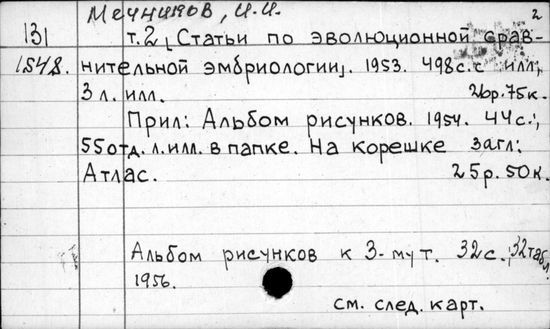 Мечников, И.И.
2
131
т.2 [Статьи по эволюционной срав-
1548.
нительной эмбриологии]. 1953. 498с. с илл.,
3 л. илл. 26р.75к.
Прил: Альбом рисунков. 1954. 44с.,
55 отд. л. илл. в папке. На корешке загл:
Атлас. 25р. 50к.
Альбом рисунков к 3-му т. 32с., 32табл.
1956.
см. след. карт.